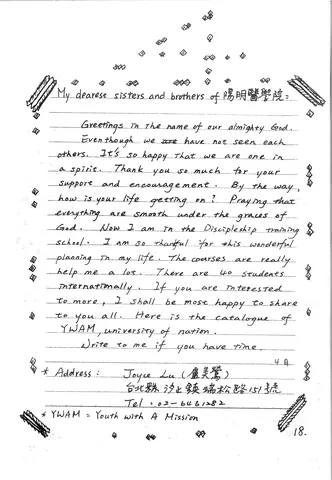 My dearese sisters and brothers of 陽明醫學院:
Greetings in the name of our almighty God.
Eventhough we have not seen each
others. It's so happy that we are one in
a spirit. Thank you so much for your
support and encouagement. By the way,
how is your life getting on? Praying that
everything are smooth under the graces of
God. Now I am in the Discipleship training
school. I am so thankful for this wonderful
planning in my life. The courses are really
help me a lot. There are 40 students
internationally. If you are interested
to more, I shall be most happy to share
to you all. Here is the catalogue of
YWAM, university of nation.
Write to me if you have time.
* Address: Joyce Lu (盧美鶯)
台北縣汐止鎮瑞松路151號
Tel = 02-6461282
* YWAM = Youth with A Mission
18.